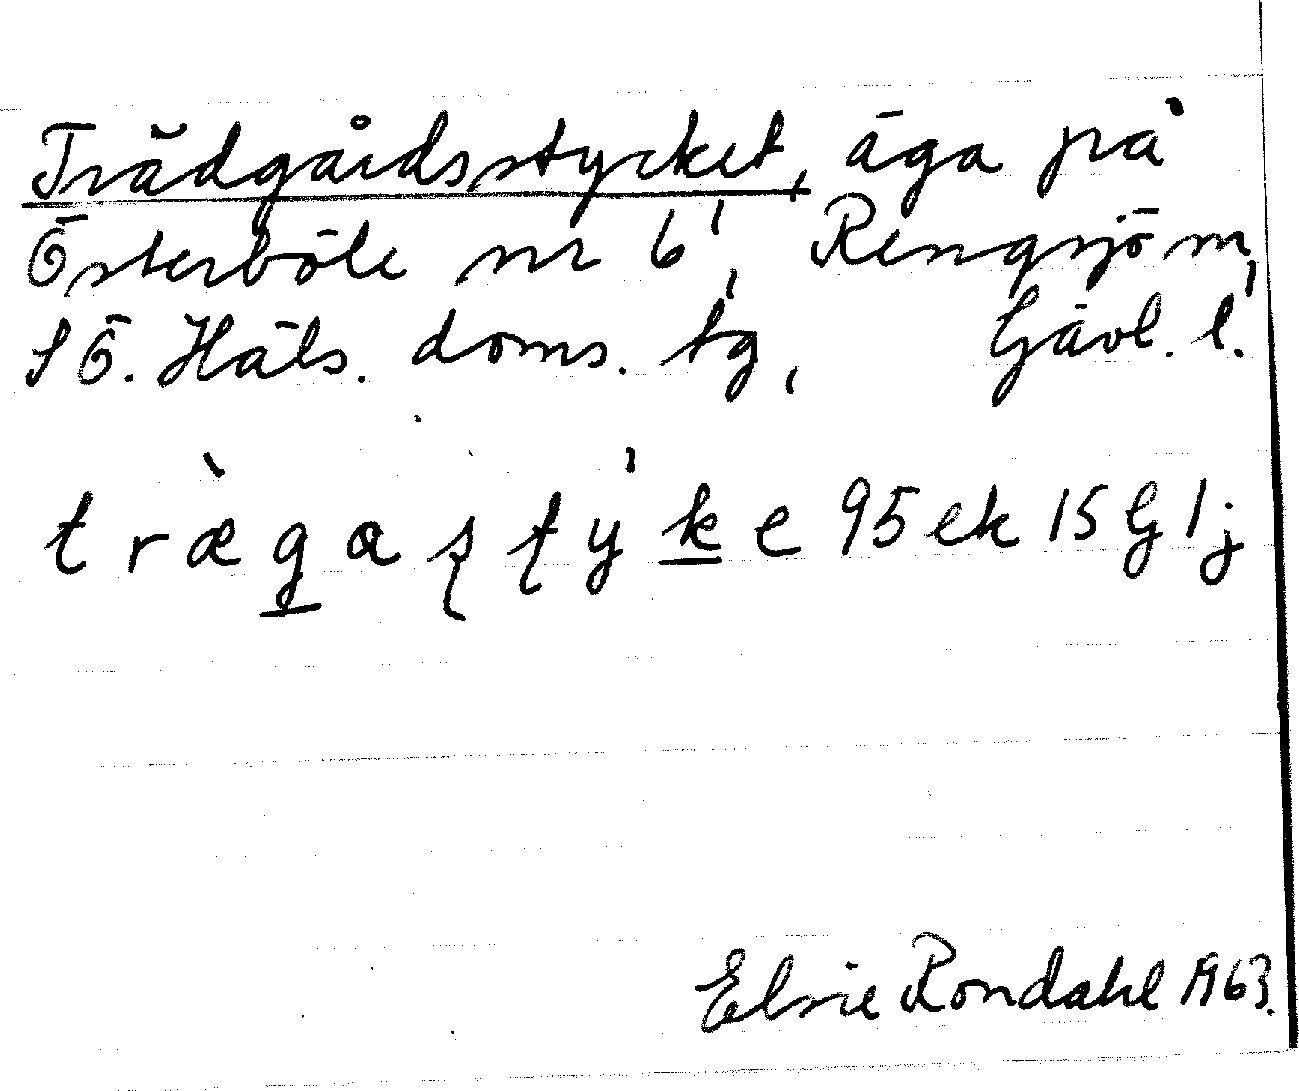 Trädgårdsstycket, äga på
Österböle nr 6¹, Rengsjö sn,
SÖ. Häls. doms. tg, Gävl. l.
trægaʂʈyke 95 ek 15 G 1 j
Elsie Rondahl 1963.